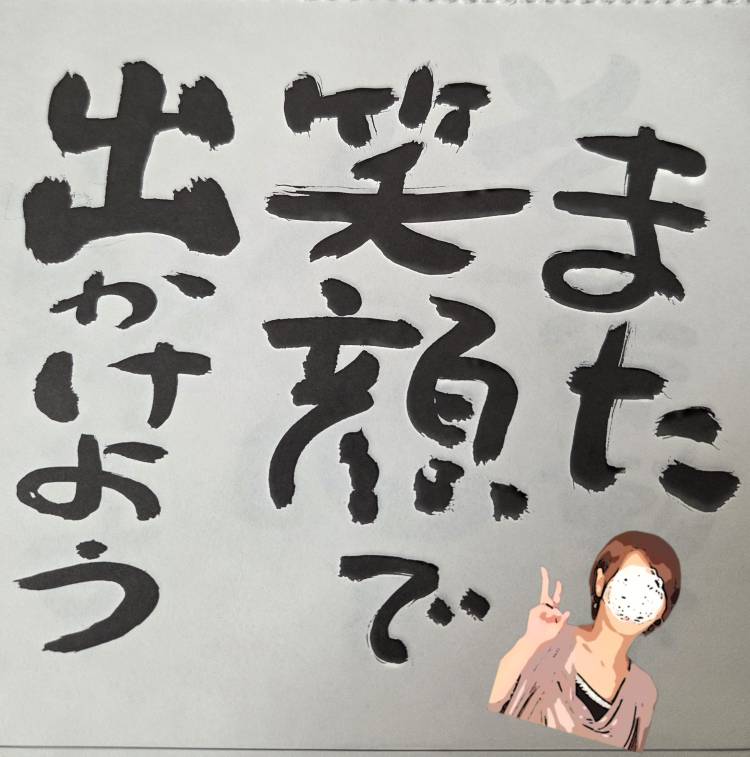 また
笑顔で
出かけよう